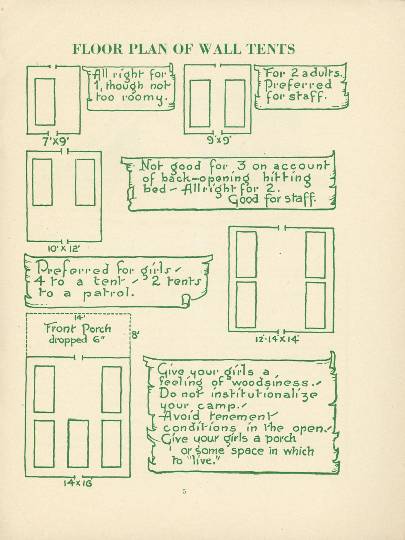 FLOOR PLAN OF WALL TENTS
All right for
1, though not
too roomy.
7'X9'
For 2 adults.
Preferred
for staff.
9'x9'
Not good for 3 on account
of back-opening hitting
bed – All right for 2.
Good for staff.
10'X12'
Preferred for girls –
4 to a tent – 2 tents
to a patrol.
12'-14'X14'
14'
Front Porch
dropped 6"
8'
14'X16'
Give your girls a
feeling of "woodsiness."
Do not institutionalize
your camp.
Avoid tenement
conditions in the open.
Give your girls a porch
or some space in which
to "live."
5